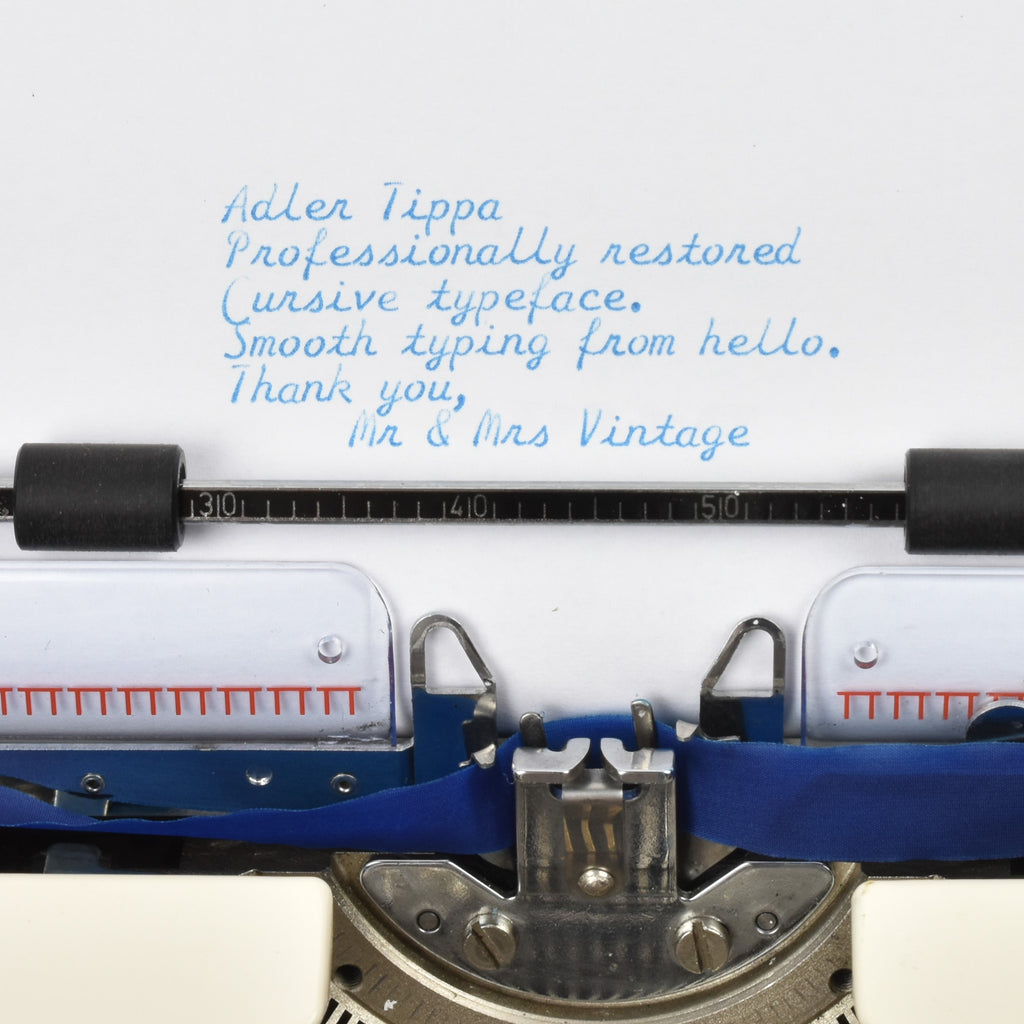 Adler Tippa
Professionally restored
Cursive typeface.
Smooth typing from hello.
Thank you,
Mr & Mrs Vintage
30 40 50